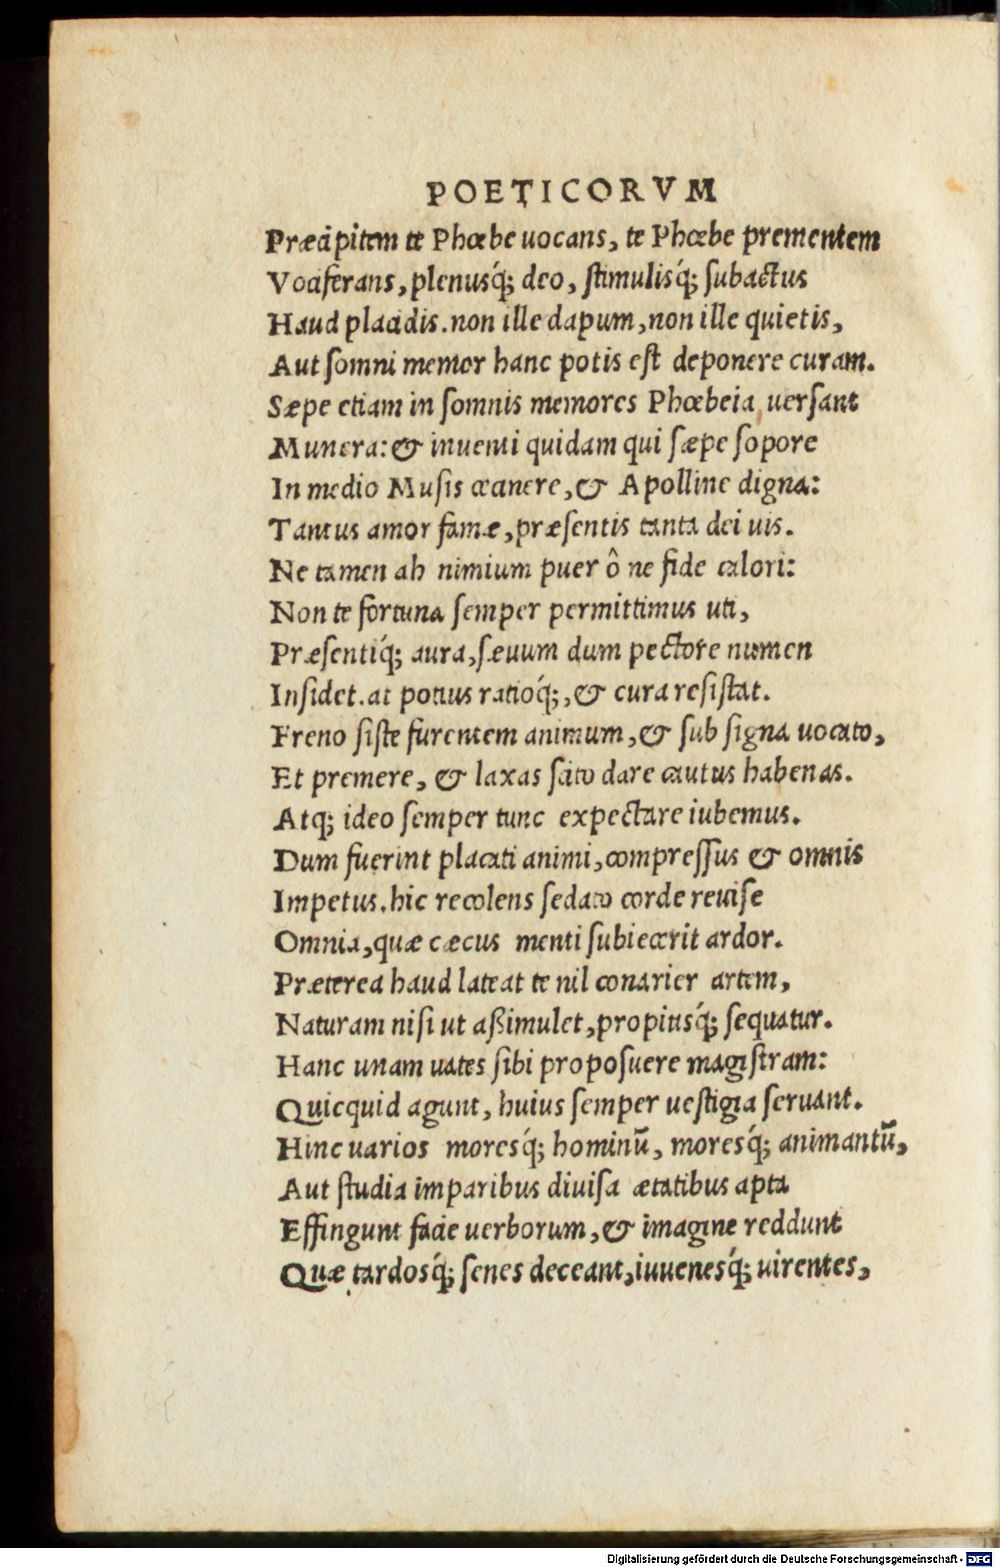 POETICORVM
Præcipitem te Phœbe uocans, te Phœbe prementem
Vociferans, plenusq́; deo, ſtimulisq́; ſubactus
Haud placidis. non ille dapum, non ille quietis,
Aut ſomni memor hanc potis eſt deponere curam.
Sæpe etiam in ſomnis memores Phœbeia uerſant
Munera: & inuenti quidam qui ſæpe ſopore
In medio Muſis cecinere, & Apolline digna:
Tantus amor famæ, præſentis tanta dei uis.
Ne tamen ah nimium puer ô ne fide calori:
Non te fortuna ſemper permittimus uti,
Præſentiq́; aura, ſæuum dum pectore numen
Inſidet. at potius ratioq́;, & cura reſiſtat.
Freno ſiſte furentem animum, & ſub ſigna uocato,
Et premere, & laxas ſcito dare cautus habenas.
Atq; ideo ſemper tunc expectare iubemus.
Dum fuerint placati animi, compreſſus & omnis
Impetus. hic recolens ſedato corde reuiſe
Omnia, quæ cæcus menti ſubiecerit ardor.
Præterea haud lateat te nil conarier artem,
Naturam niſi ut aßimulet, propiusq́; ſequatur.
Hanc unam uates ſibi propoſuere magiſtram:
Quicquid agunt, huius ſemper ueſtigia ſeruant.
Hinc uarios moresq́; hominū, moresq́; animantū,
Aut ſtudia imparibus diuiſa ætatibus apta
Effingunt facie uerborum, & imagine reddunt
Quæ tardosq́; ſenes deceant, iuuenesq́; uirentes,
Digitalisierung gefördert durch die Deutsche Forschungsgemeinschaft - DFG